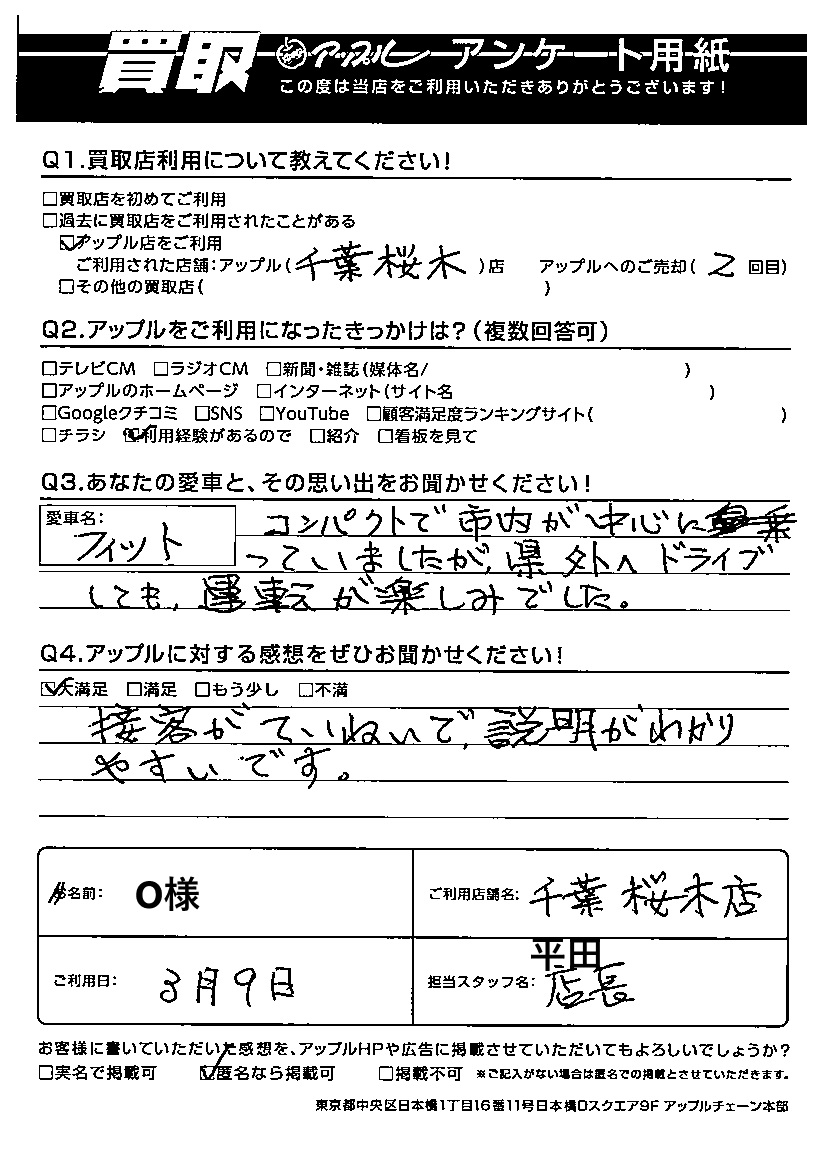 買取 アップル アンケート用紙
この度は当店をご利用いただきありがとうございます!
Q1.買取店利用について教えてください!
□買取店を初めてご利用
□過去に買取店をご利用されたことがある
☑アップル店をご利用
ご利用された店舗:アップル(千葉桜木)店 アップルへのご売却(2回目)
□その他の買取店( )
Q2.アップルをご利用になったきっかけは?(複数回答可)
□テレビCM □ラジオCM □新聞・雑誌(媒体名/ )
□アップルのホームページ □インターネット(サイト名 )
□Googleクチコミ □SNS □YouTube □顧客満足度ランキングサイト( )
□チラシ ☑利用経験があるので □紹介 □看板を見て
Q3.あなたの愛車と、その思い出をお聞かせください!
愛車名:
フィット
コンパクトで市内が中心に乗
っていましたが、県外へドライブ
しても、運転が楽しみでした。
Q4.アップルに対する感想をぜひお聞かせください!
☑大満足 □満足 □もう少し □不満
接客がていねいで、説明がわかり
やすいです。
お名前: O様
ご利用店舗名: 千葉桜木店
ご利用日: 3月9日
担当スタッフ名: 平田店長
お客様に書いていただいた感想を、アップルHPや広告に掲載させていただいてもよろしいでしょうか?
□実名で掲載可 ☑匿名なら掲載可 □掲載不可 ※ご記入がない場合は匿名での掲載とさせていただきます。
東京都中央区日本橋1丁目16番11号日本橋Dスクエア9F アップルチェーン本部